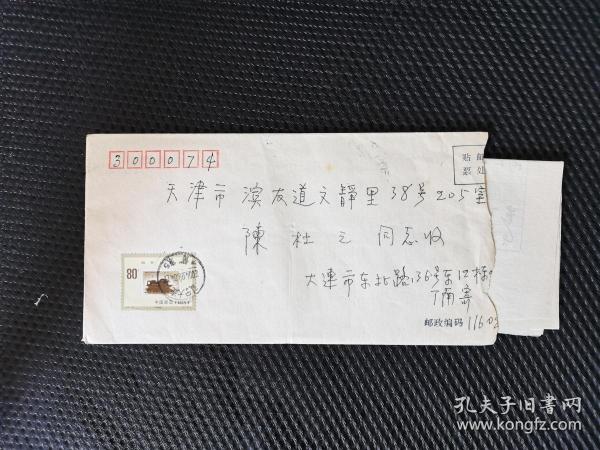 300074
贴邮
票处
天津市滨友道文静里38号205室
陳杜之同志收
大连市东北路136号东12栋
丁甬寄
邮政编码 116
80
孔夫子旧书网
www.kongfz.com